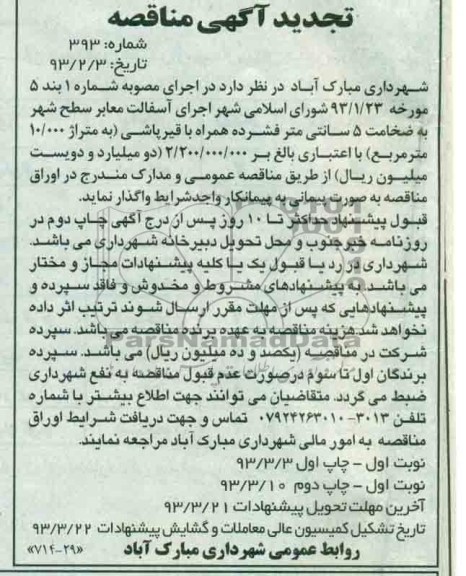 تجدید آگهی مناقصه
شماره: ۳۹۳
تاریخ: ۹۳/۲/۳
شهرداری مبارک آباد در نظر دارد در اجرای مصوبه شماره ۱ بند ۵
مورخه ۹۳/۱/۲۳ شورای اسلامی شهر اجرای آسفالت معابر سطح شهر
به ضخامت ۵ سانتی متر فشرده همراه با قیرپاشی (به متراژ ۱۰/۰۰۰
مترمربع) با اعتباری بالغ بر ۲/۲۰۰/۰۰۰/۰۰۰ (دو میلیارد و دویست
میلیون ریال) از طریق مناقصه عمومی و مدارک مندرج در اوراق
مناقصه به صورت پیمانی به پیمانکار واجدشرایط واگذار نماید.
قبول پیشنهاد حداکثر تا ۱۰ روز پس از درج آگهی چاپ دوم در
روزنامه خبرجنوب و محل تحویل دبیرخانه شهرداری می باشد.
شهرداری در رد یا قبول یک یا کلیه پیشنهادات مجاز و مختار
می باشد. به پیشنهادهای مشروط و مخدوش و فاقد سپرده و
پیشنهادهایی که پس از مهلت مقرر ارسال شوند ترتیب اثر داده
نخواهد شد. هزینه مناقصه به عهده برنده مناقصه می باشد. سپرده
شرکت در مناقصه (یکصد و ده میلیون ریال) می باشد. سپرده
برندگان اول تا سوم درصورت عدم قبول مناقصه به نفع شهرداری
ضبط می گردد. متقاضیان می توانند جهت اطلاع بیشتر با شماره
تلفن ۳۰۱۳-۰۷۹۲۴۲۶۳۰۱۰ تماس و جهت دریافت شرایط اوراق
مناقصه به امور مالی شهرداری مبارک آباد مراجعه نمایند.
نوبت اول - چاپ اول ۹۳/۳/۳
نوبت اول - چاپ دوم ۹۳/۳/۱۰
آخرین مهلت تحویل پیشنهادات ۹۳/۳/۲۱
تاریخ تشکیل کمیسیون عالی معاملات و گشایش پیشنهادات ۹۳/۳/۲۲
روابط عمومی شهرداری مبارک آباد «۷۱۴-۲۹»
ParsNamadData